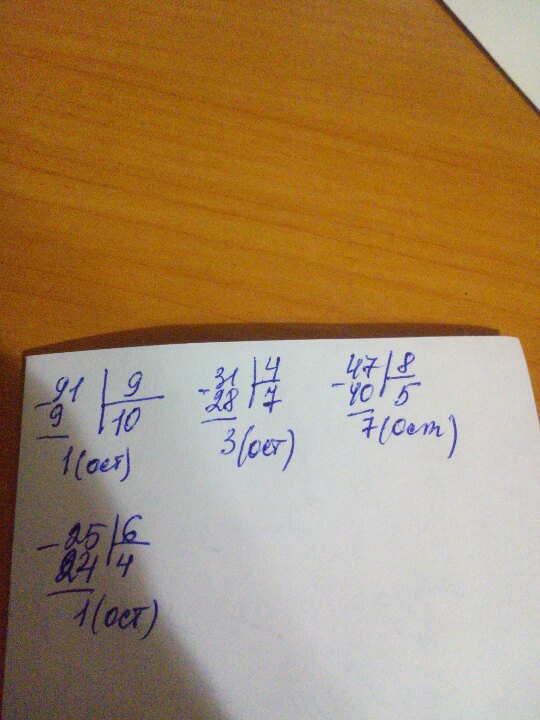 - 91 | 9
9 | 10
1 (ост)
- 31 | 4
28 | 7
3 (ост)
- 47 | 8
40 | 5
7 (ост)
- 25 | 6
24 | 4
1 (ост)